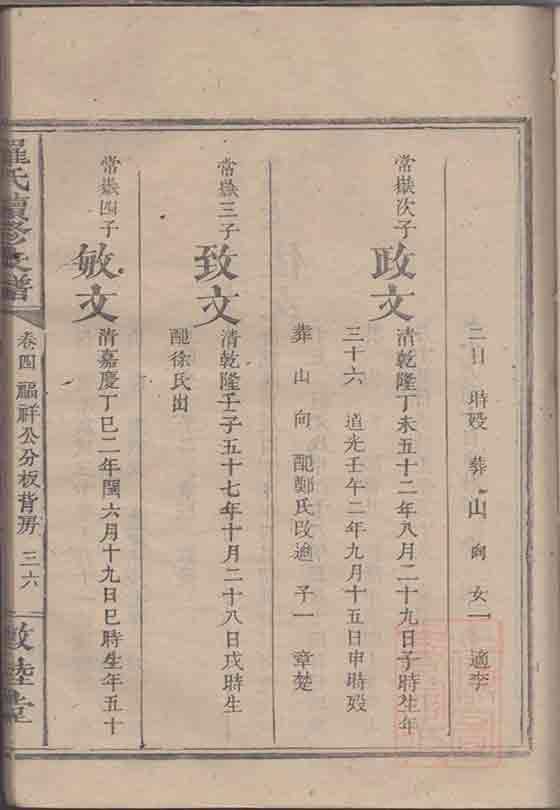 二日 時殁 葬 山 向 女一 適李
常嶽次子
政文
清乾隆丁未五十二年八月二十九日子時生年
三十六 道光壬午二年九月十五日申時殁
葬 山 向 配鄭氏改適 子一 章楚
常嶽三子
致文
清乾隆壬子五十七年十月二十八日戌時生
配徐氏出
常嶽四子
敏文
清嘉慶丁巳二年閏六月十九日巳時生年五十
羅氏續修支譜
卷四 福祥公分板背房 三六
敦陸堂